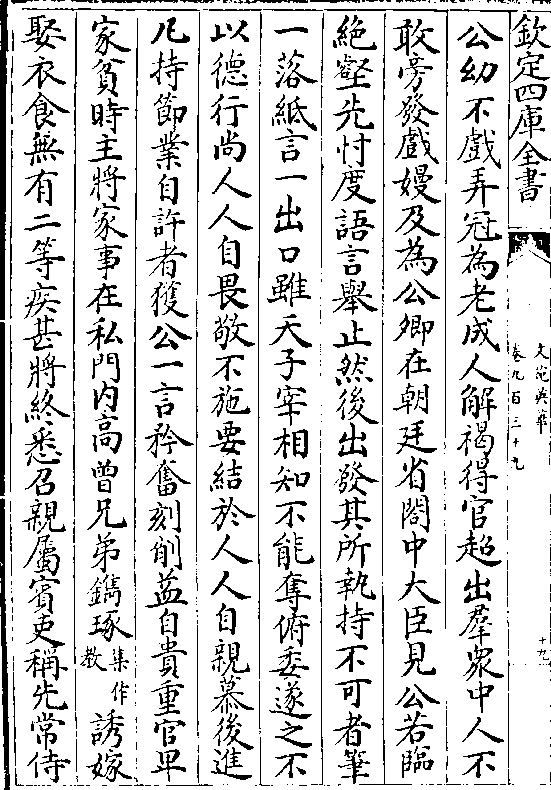 欽定四庫全書
文苑英華
卷九百三十九
十九
公幼不戲弄冠為老成人解褐得官超出羣衆中人不
敢旁發戲嫚及為公卿在朝廷省閤中大臣見公若臨
絶壑先忖度語言舉止然後出發其所執持不可者筆
一落紙言一出口雖天子宰相知不能奪俯委遂之不
以德行尚人人自畏敬不施要結於人人自親慕後進
凡持節業自許者獲公一言矜奮刻削益自貴重官卑
家貧時主將家事在私門内高曾兄弟鐫琢集作教誘嫁
娶衣食無有二等疾甚將終悉召親屬賓吏稱先常侍